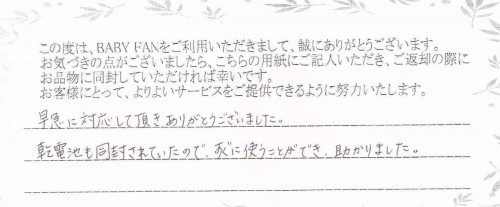 この度は、BABY FANをご利用いただきまして、誠にありがとうございます。
お気づきの点がございましたら、こちらの用紙にご記入いただき、ご返却の際に
お品物に同封していただければ幸いです。
お客様にとって、よりよいサービスをご提供できるように努力いたします。
早急に対応して頂きありがとうございました。
乾電池も同封されていたので、すぐに使うことができ、助かりました。